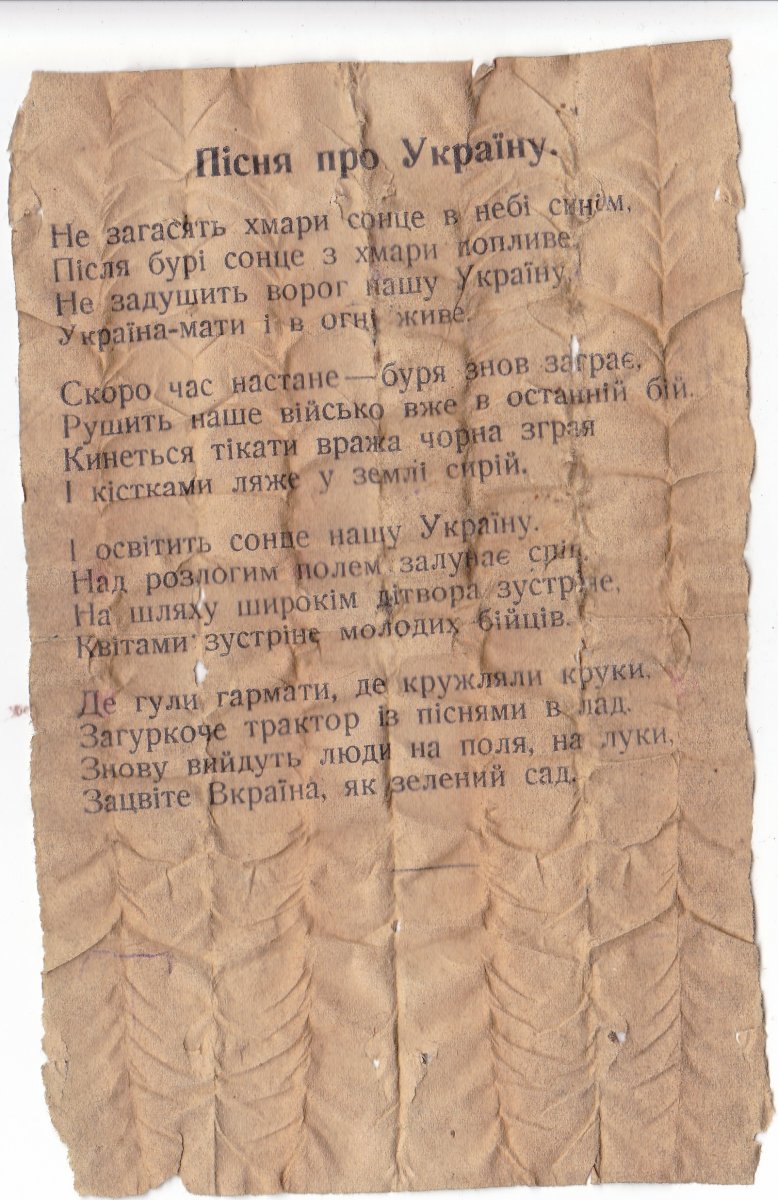 Пісня про Україну.
Не загасять хмари сонце в небі синім,
Після бурі сонце з хмари попливе.
Не задушить ворог нашу Україну,
Україна-мати і в огні живе.
Скоро час настане—буря знов заграє,
Рушить наше військо вже в останній бій.
Кинеться тікати вража чорна зграя
І кістками ляже у землі сирій.
І освітить сонце нащу Україну.
Над розлогим полем залунає спів.
На шляху широкім дітвора зустріне,
Квітами зустріне молодих бійців.
Де гули гармати, де кружляли круки,
Загуркоче трактор із піснями в лад.
Знову вийдуть люди на поля, на луки,
Зацвіте Вкраїна, як зелений сад.